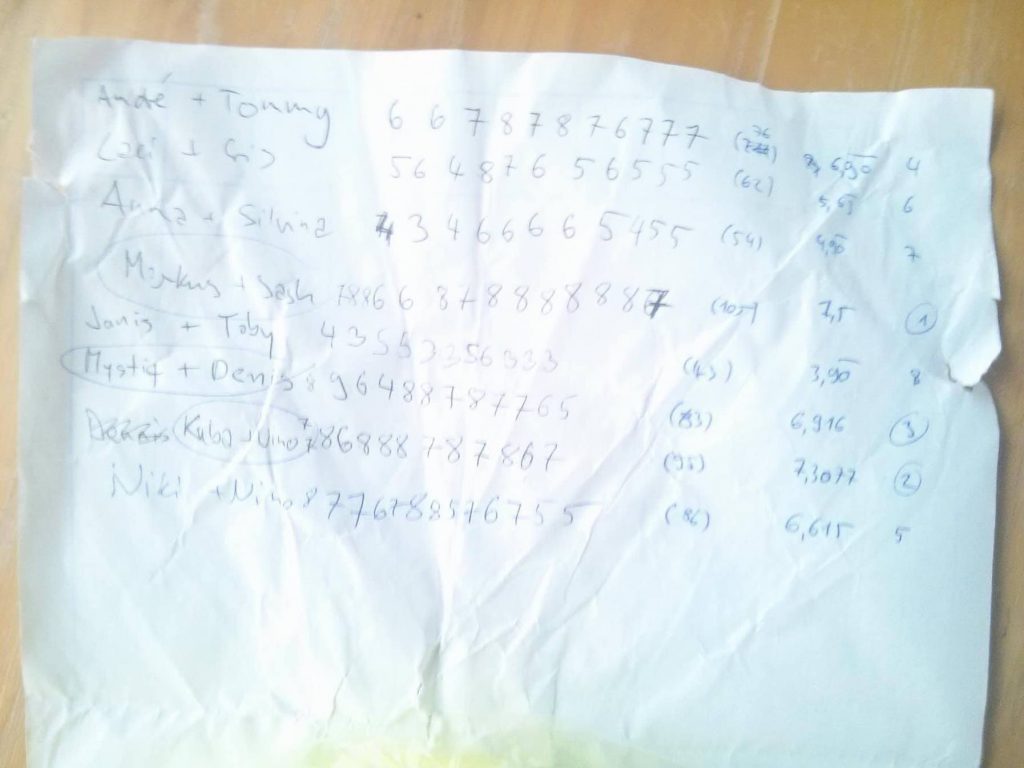 André + Tommy 6 6 7 8 7 8 7 6 7 7 7 (76) 6,90 4
5 6 4 8 7 6 5 6 5 5 5 (62) 5,63 6
Anna + Silvina 4 3 4 6 6 6 6 5 4 5 5 (54) 4,90 7
Markus + Sash 7 8 8 6 6 8 7 8 8 8 8 8 8 7 (105) 7,5 1
Janis + Toby 4 3 5 5 3 3 5 6 3 3 3 (43) 3,90 8
Mystiq + Denis 8 9 6 4 8 8 7 8 7 7 6 5 (83) 6,916 3
Kuba + Nino 7 7 8 6 8 8 8 7 8 7 8 6 7 (95) 7,3077 2
Niki + Nino 8 7 7 6 7 8 8 5 7 6 7 5 5 (86) 6,615 5